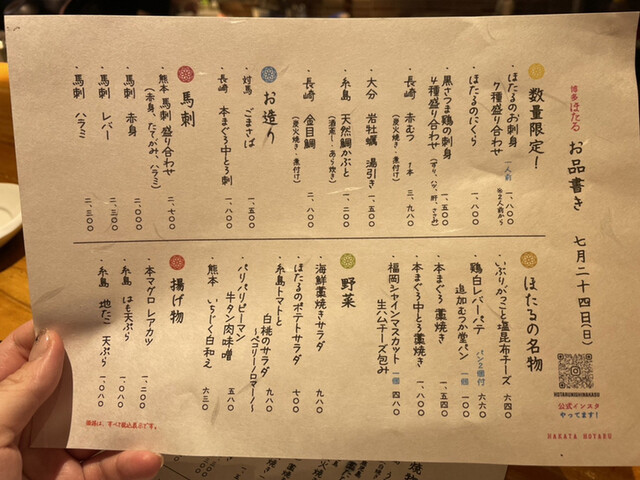 博多ほたる お品書き 七月二十四日(日)
数量限定!
・ほたるのお刺身
7種盛り合わせ 一人前 一、八〇〇
※2人前から
・ほたるのにくら 一、八〇〇
・黒さつま鶏の刺身
4種盛り合わせ(ずり、ハツ、肝、ささみ) 一、五〇〇
・長崎 赤むつ 1本 三、九八〇
(炭火焼き・煮付け)
・大分 岩牡蠣 湯引き 一、五〇〇
・糸島 天然鯛かぶと 一、二〇〇
(酒蒸し・あら炊き)
・長崎 金目鯛 二、八〇〇
(炭火焼き・煮付け)
お造り
・対馬 ごまさば 一、五〇〇
・長崎 本まぐろ中とろ刺 一、八〇〇
馬刺
・熊本 馬刺 盛り合わせ 二、七〇〇
(赤身、たてがみ、ハラミ)
・馬刺 赤身 二、〇〇〇
・馬刺 レバー 二、三〇〇
・馬刺 ハラミ 二、三〇〇
ほたるの名物
・いぶりがっこと塩昆布チーズ 六四〇
・鶏白レバーパテ パン2個付 六六〇
追加むつか堂パン 一個 一〇〇
・本まぐろ 藁焼き 一、五四〇
・本まぐろ中とろ藁焼き 一、八〇〇
・福岡シャインマスカット 一個 四八〇
生ハムチーズ包み
野菜
・海鮮藁焼きサラダ 九八〇
・ほたるのポテトサラダ 七〇〇
・糸島トマトと
白桃のサラダ 九八〇
〜ペコリーノロマーノ〜
・パリパリピーマン
牛タン肉味噌 五八〇
・熊本 いちじく白和え 六三〇
揚げ物
・本マグロ レアカツ 一、二〇〇
・糸島 はも天ぷら 一、〇八〇
・糸島 地だこ 天ぷら 一、〇八〇
HOTARUNISHINAKASU
公式インスタ
やってます!
HAKATA HOTARU
価格は、すべて税込表示です。